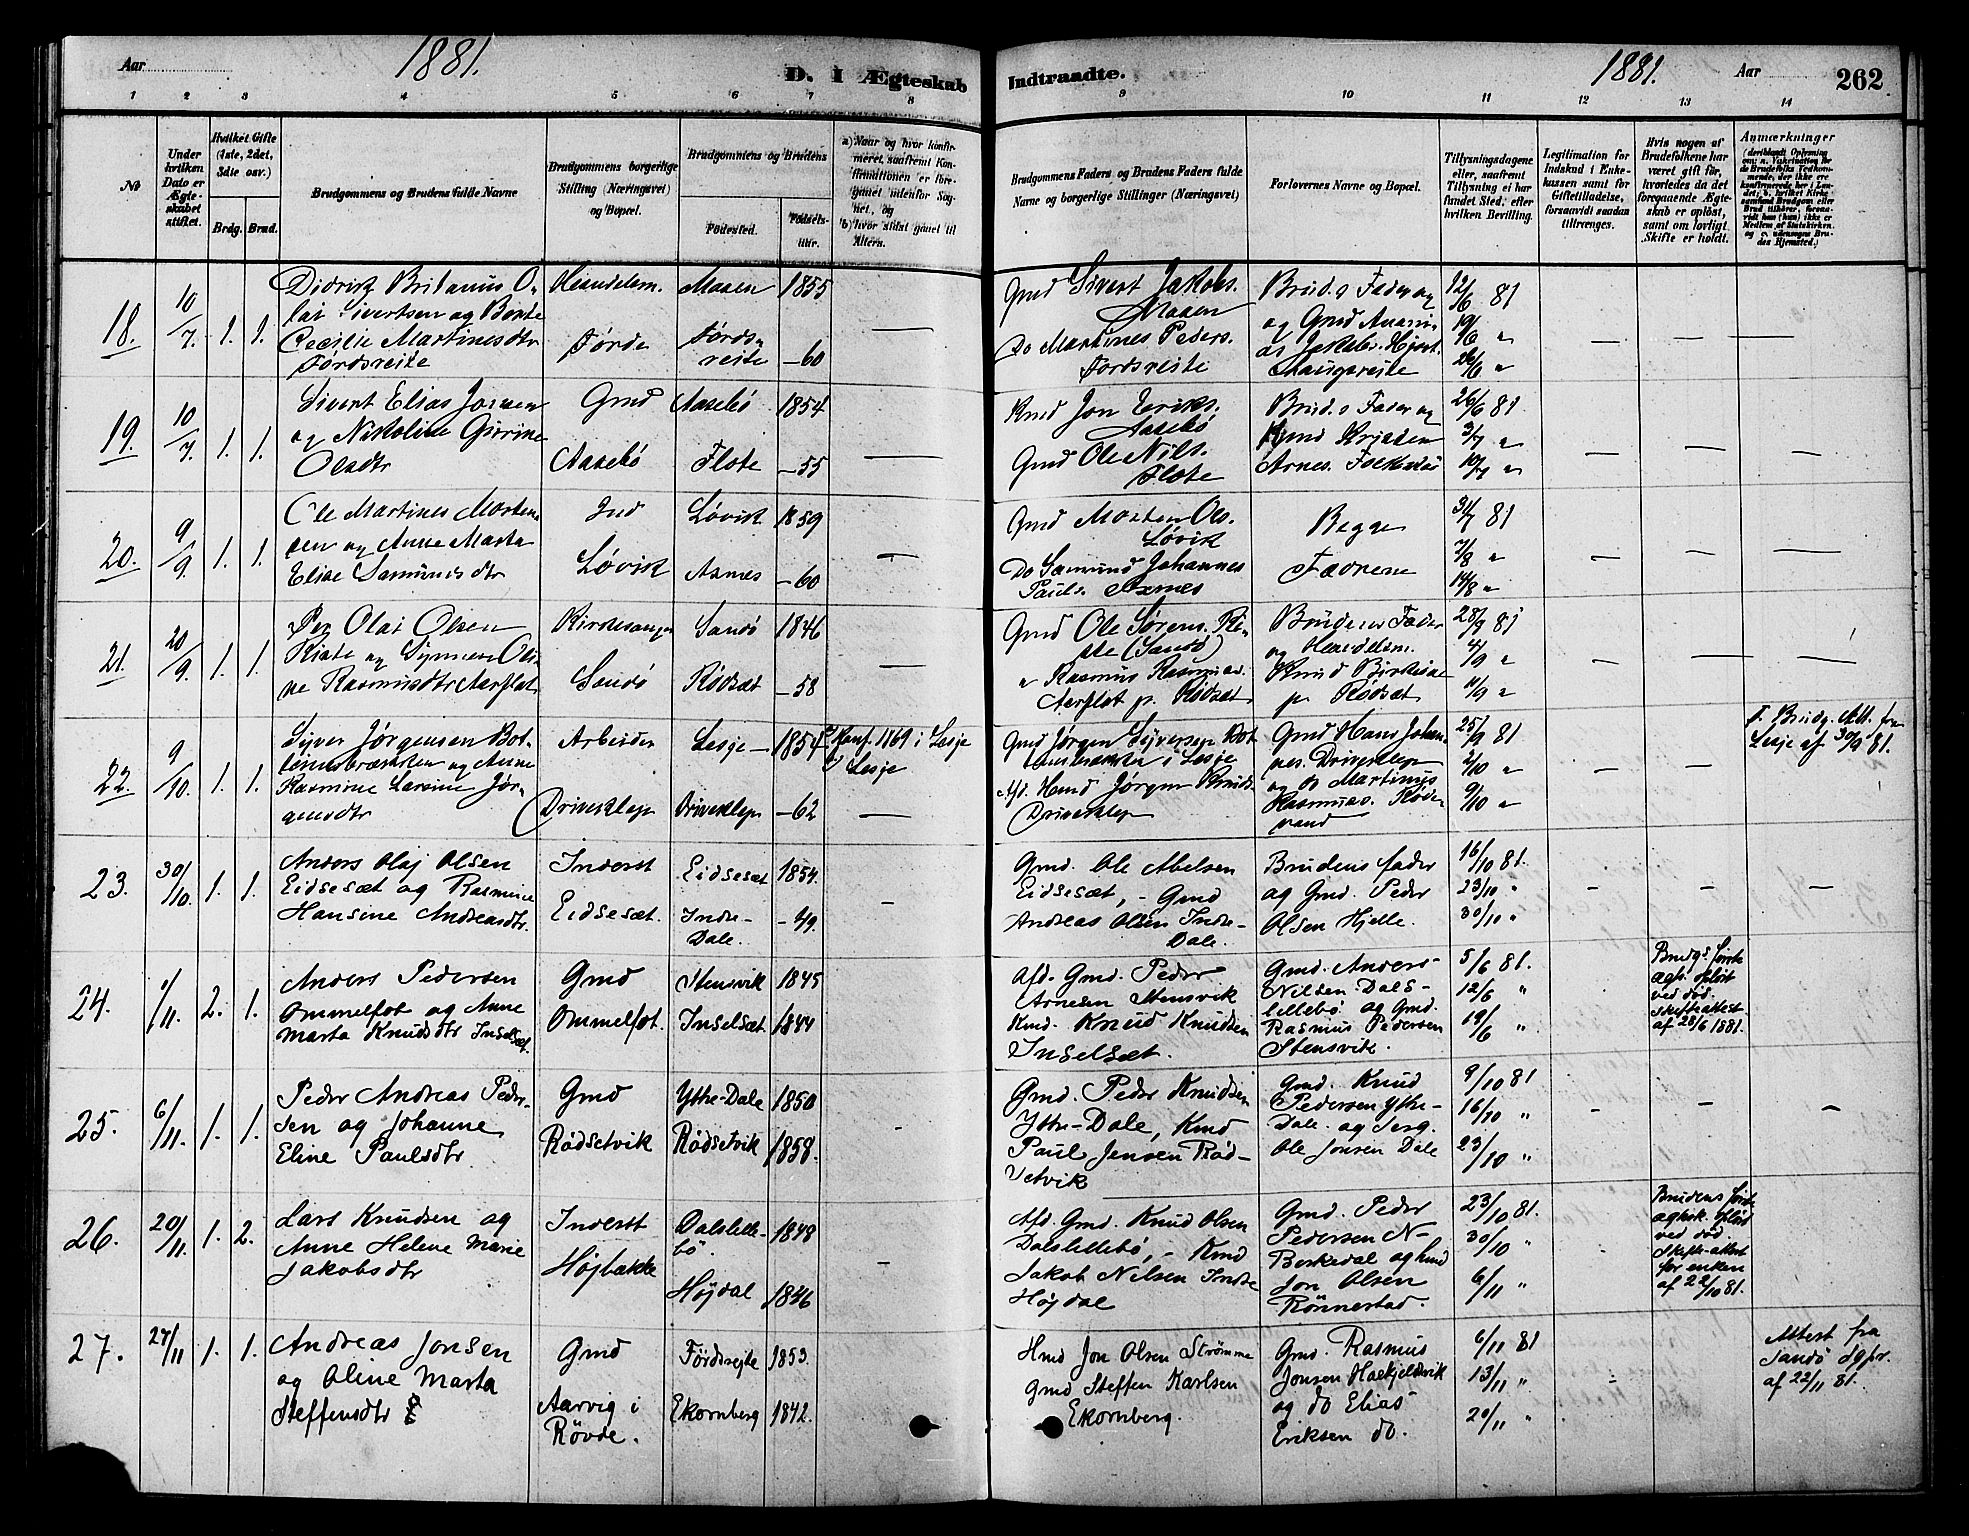 Aar 1881.
D. I Ægteskab Indtraadte.
1881. Aar 262
1 2 3 4 5 6 7 8 9 10 11 12 13 14
No
Under hvilken Dato er Ægteskabet stiftet.
Hvilket Gifte (1ste, 2det, 3die osv.)
Brdg. Brud.
Brudgommens og Brudens fulde Navne
Brudgommens borgerlige Stilling (Næringsvei) og Bopæl.
Brudgommens og Brudens
Födested. Födselsaar.
a) Naar og hvor konfirmeret, saafremt Konfirmationen er foregaaet udenfor Sognet, og
b) hvor sidst gaaet til Alters.
Brudgommens Faders og Brudens Faders fulde Navne og borgerlige Stillinger (Næringsvei)
Forlovernes Navne og Bopæl.
Tillysningsdagene eller, saafremt Tillysning ei har fundet Sted, efter hvilken Bevilling.
Legitimation for Indskud i Enkekassen samt for Giftetilladelse, forsaavidt saadan tiltrænges.
Hvis nogen af Brudefolkene har været gift för, hvorledes da det foregaaende Ægteskab er oplöst, samt om lovligt Skifte er holdt.
Anmærkninger
18. 10/7. 1. 1.
Didrik Britanus O-
lai Sivertsen og Bente
Cecilie Martinesdtr
Førdsreite
Handelsm.
Førde
Maaen 1855
Førds-
reite -60
Gmd Sivert Jakobs.
Maaen
Do Martines Peders.
Førdsreite
Bruds Fader og
og Gmd Anani-
as Jakobs. Hjort-
haugsreite
12/6 81
19/6 "
26/6 "
19. 10/7. 1. 1.
Sivert Elias Jonsen
og Nikoline Gurine
Olsdtr
Gmd
Aasebö
Aasebö 1854
Flote -55
Kmd Jon Eriks.
Aasebö
Gmd Ole Nils.
Flote
Bruds Fader og
Kmd Kristen
Arnes. Folkestad
26/6 81
3/7 "
10/7 "
20. 9/9. 1. 1.
Ole Martines Morten-
sen og Anne Marta
Elise Samundsdtr
Ind
Løvik
Løvik 1859
Aasnes -60
Gmd Morten Ols.
Løvik
Do Samund Johannes
Pauls. Aasnes
Begge
Fædrene
31/7 81
7/8 "
14/8 "
21. 20/9. 1. 1.
Per Olai Olsen
Riste og Synnøve Oli-
ne Rasmusdtr Aarflot
Kirkesanger
Sandö
Sandö 1846
Rödsæt -58
Gmd Ole Sørens. Ri-
ste (Sandö)
" Rasmus Rasmus.
Aarflot p. Rödsæt
Brudens Fader
og Handelsm.
Knud Birkisne
p. Rödsæt
28/8 81
4/9 "
11/9 "
22. 9/10. 1. 1.
Syver Jørgensen Bot-
tenubrænden og Anne
Rasmine Larsine Jør-
gensdtr
Arbeider
Driveklep
Lesje 1854
Driveklep -62
Konf. 1869 i Lesje
Lesje
Gmd Jørgen Syversen Bot-
tenubrænden i Lesje
Afd. Hmd Jørgen Knuds.
Driveklep
Gmd Hans Johan-
nes. Driveklep
og do Martinus
Rasmus. Røde-
vand
25/9 81
2/10 "
9/10 "
f. Brudg. Att. fra
Lesje af 30/9 81.
23. 30/10. 1. 1.
Anders Olaj Olsen
Eidsesæt og Rasmine
Hansine Andreasdtr.
Inderst
Eidsesæt.
Eidsesæt 1854.
Indre-
Dale. -49.
Gmd. Ole Abelsen
Eidsesæt, - Gmd
Andreas Olsen Indre-
Dale.
Brudens fader
og Gmd. Peder
Olsen Hjelle.
16/10 81.
23/10 "
30/10 "
24. 1/11. 2. 1.
Anders Pedersen
Ommelfot og Anne
Marta Knudsdtr Inselsæt.
Gmd
Ommelfot.
Stensvik 1845
Inselsæt. 1844
Afd. Gmd. Peder
Arnesen Stensvik
Kmd. Knud Knudsen
Inselsæt.
Gmd. Anders
Nilsen Dals-
lillebö og Gmd.
Rasmus Pedersen
Stensvik.
5/6 81.
12/6 "
19/6 "
Brudgs förste
ægt. opløst
ved död.
Skifteattest
af 28/6 1881.
25. 6/11. 1. 1.
Peder Andreas Peder-
sen og Johanne
Eline Paulsdtr
Gmd
Rödsetvik
Ytre-Dale 1850
Rödsetvik 1858.
Gmd. Peder Knudsen
Ytre-Dale, Kmd
Paul Jensen Röd-
setvik
Gmd. Knud
Pedersen Ytre-
Dale. og Serg.
Ole Jonsen Dale
9/10 81
16/10 "
23/10 "
26. 20/11. 1. 2.
Lars Knudsen og
Anne Helene Marie
Jakobsdtr
Inderst
Højbakke
Dalslille-
bö. 1848
Höjdal 1846
Afd. Gmd. Knud Olsen
Dalslillebö, - Kmd
Jakob Nelsen Indre
Höjdal
Gmd. Peder
Pedersen N-
Berkedal og hmd
Jon Olsen
Rönnestad.
23/10 81.
30/10 "
6/11 "
Brudens förste
ægtesk. opløst
ved död
Skifte-attest
for enken
af 22/10 81.
27. 27/11 1. 1.
Andreas Jonsen
og Oline Marta
Steffensdtr
Gmd
Aarvig i
Røvde.
Førdsrejte 1853.
Ekornberg 1842.
Hmd Jon Olsen Strömme
Gmd Steffen Karlsen
Ekornberg.
Gmd. Rasmus
Jonsen Haakjeldsvik
og do Elias
Eriksen do.
6/11 81
13/11 "
20/11 "
Attest fra
Sandö dgpr.
af 22/11 81.